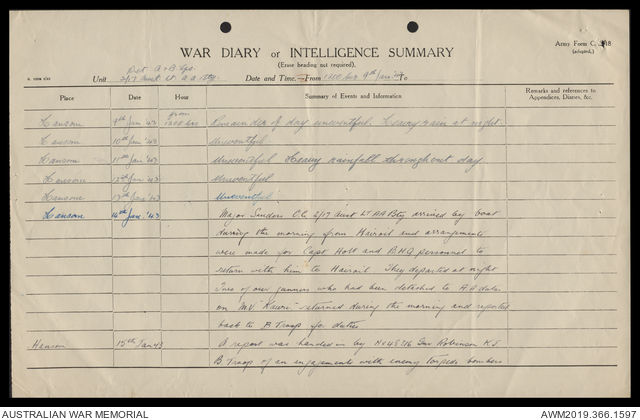 Army Form C.
(adapted.)
WAR DIARY or INTELLIGENCE SUMMARY
(Erase heading not required).
Det A & B Tps
Unit 2/17 Aust Lt A A Bty. Date and Time—From 1200 hrs 9th Jan To
Place Date Hour Summary of Events and Information Remarks and references to Appendices, Diaries, &c.
9th Jan '43 from 1200 hrs Remainder of day uneventful. Heavy rain at night.
10th Jan '43 Uneventful
11th Jan '43 Uneventful Heavy rainfall throughout day
12th Jan '43 Uneventful
13th Jan '43 Uneventful
14th Jan. '43 Major O.C. 2/17 Aust Lt AA Bty arrived by boat
during the morning from and arrangements
were made for Capt Holt and B.H.Q personnel to
return with him to They departed at night
of our gunners who had been detached to A.A duties
on M.V. returned during the morning and reported
back to B Troop for duties
15th Jan 43 A report was handed in by Robinson K.J.
B Troop of an engagement with enemy torpedo bombers
AUSTRALIAN WAR MEMORIAL AWM2019.366.1597